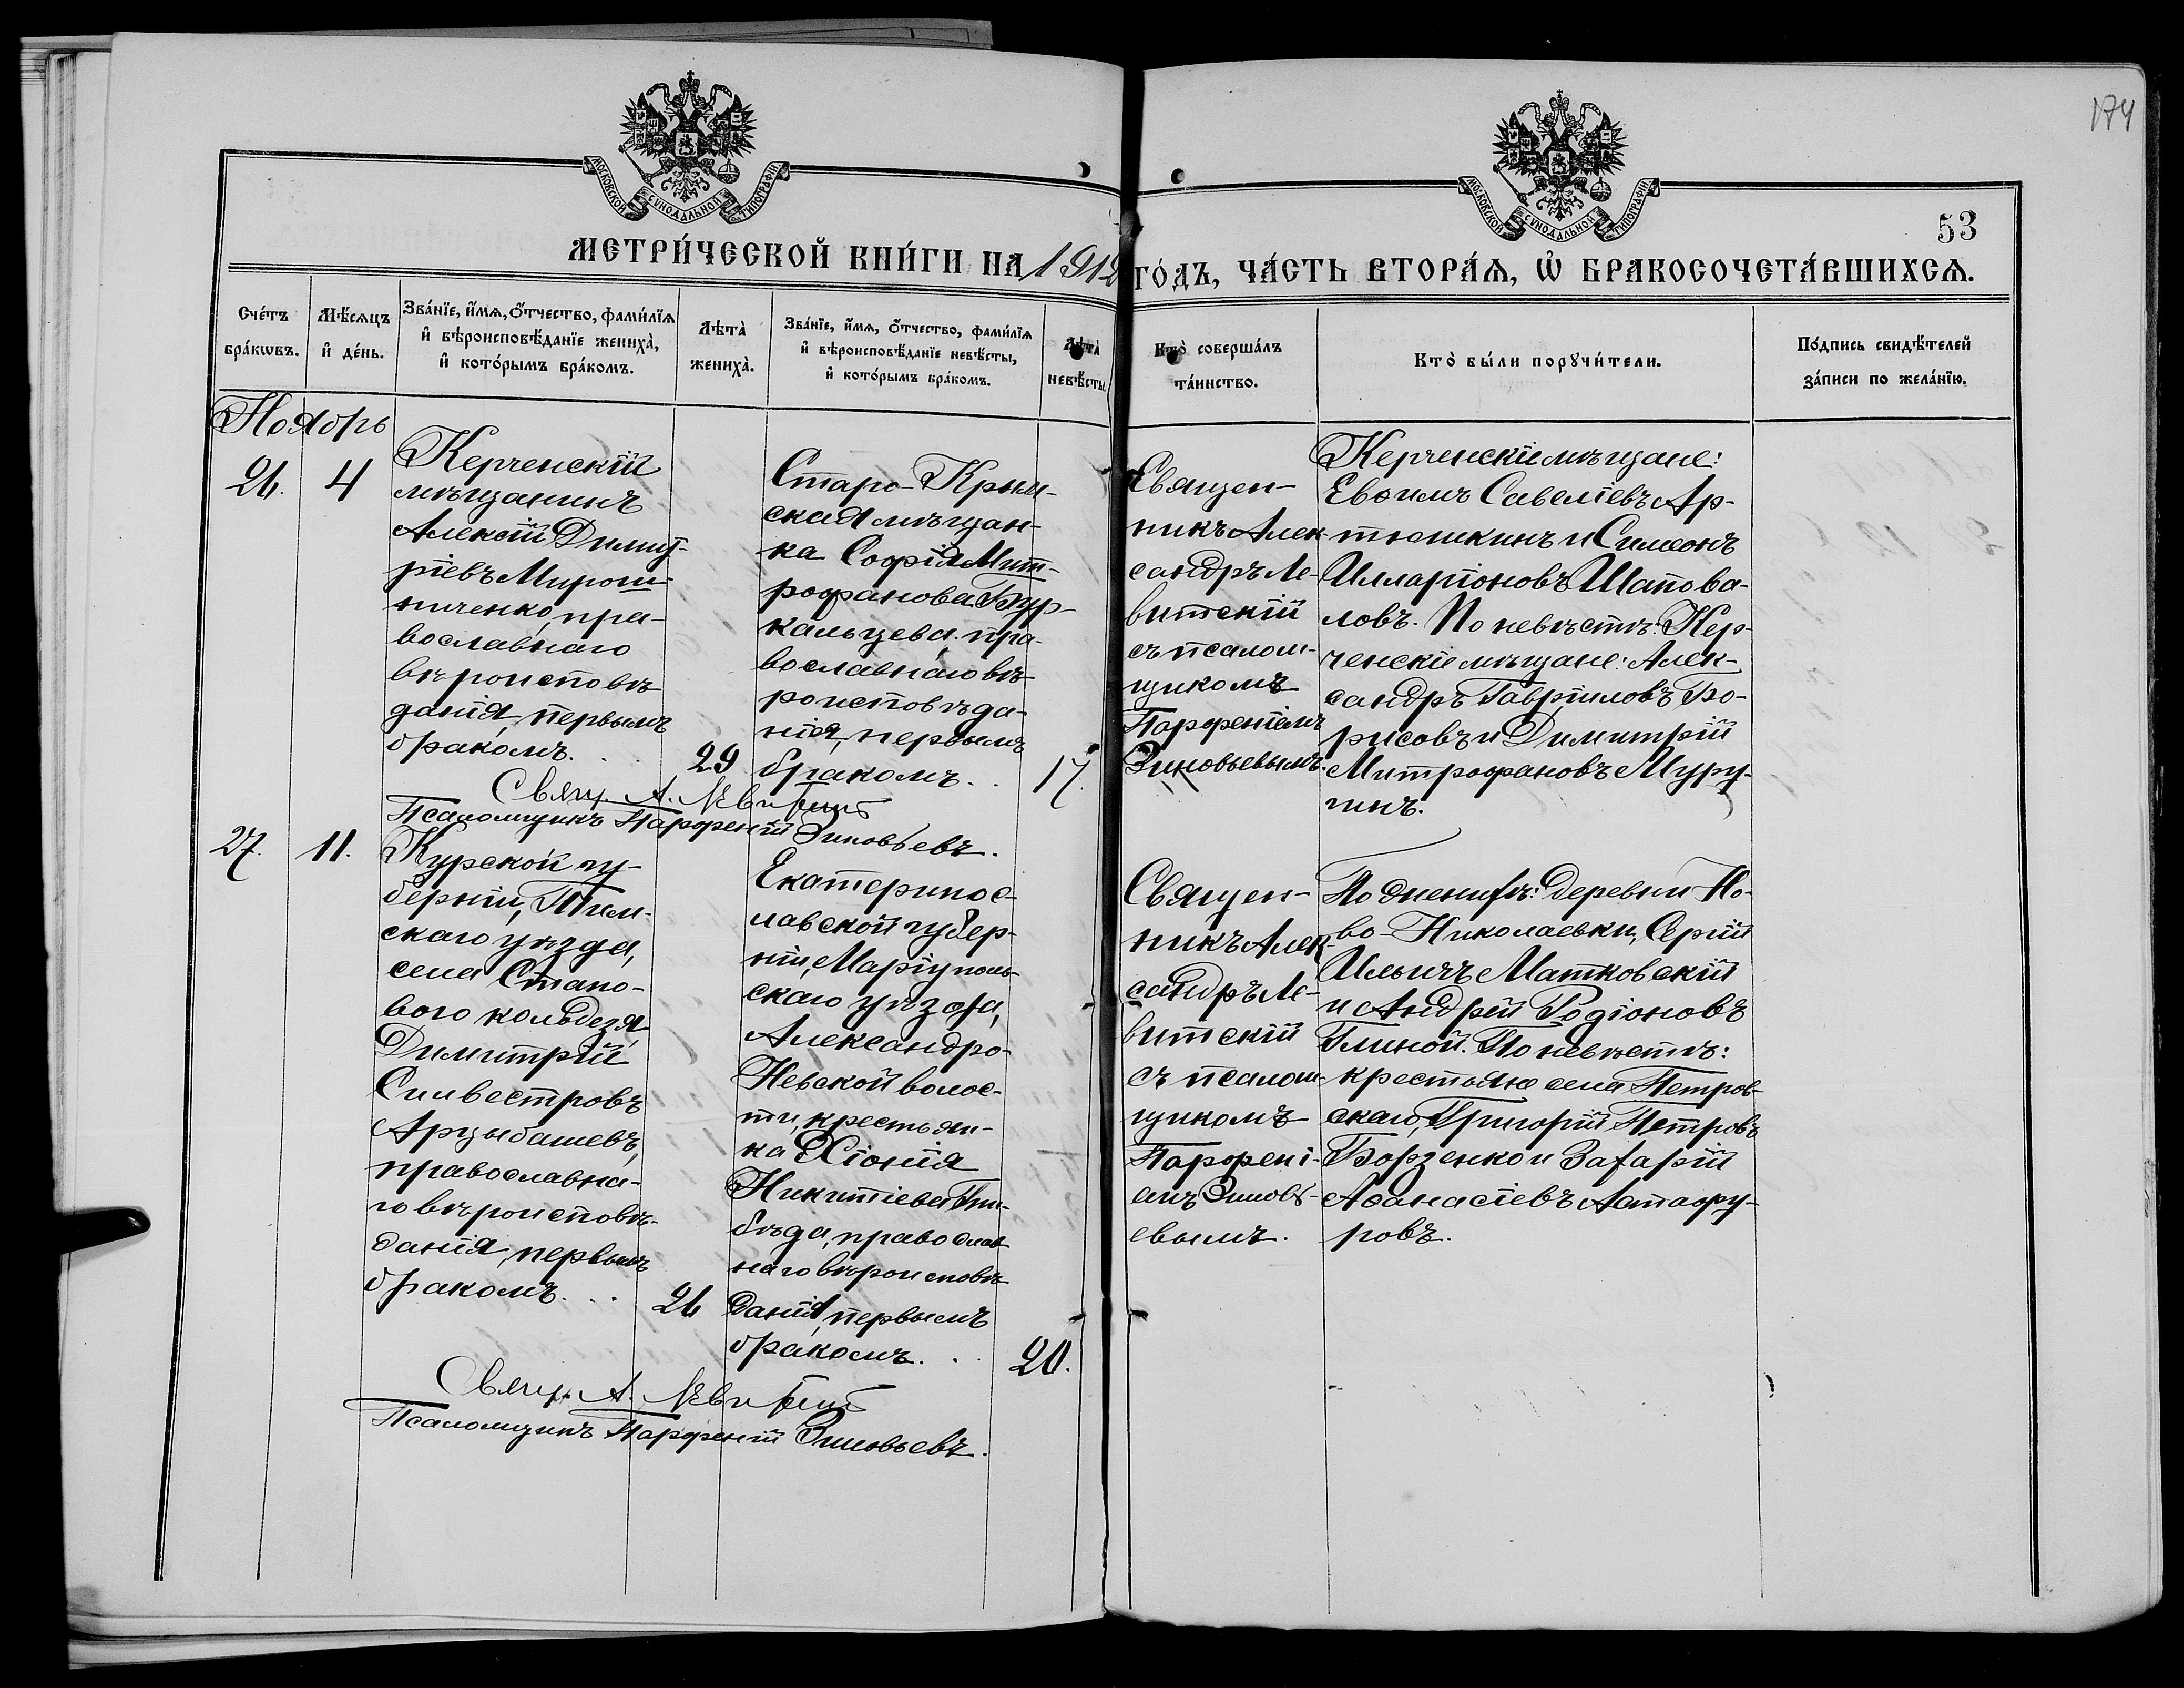 174
МОСКОВСКОЙ СУНОДАЛЬНОЙ ТИПОГРАФІИ
МОСКОВСКОЙ СУНОДАЛЬНОЙ ТИПОГРАФІИ
53
МЕТРИ́ЧЕСКОЙ КНИ́ГИ НА 1912 ГО́ДЪ, ЧА́СТЬ ВТОРА́Ѧ, Ѡ҆ БРАКОСОЧЕТА́ВШИХСѦ.
Сче́тъ
бра́кѡвъ.
Мѣ́сѧцъ
и҆ де́нь.
Зва́нїе, и҆́мѧ, ѻ҆́тчество, фами́лїѧ
и҆ вѣроисповѣ́данїе жениха̀,
и҆ кото́рымъ бра́комъ.
Лѣта̀
жениха̀.
Зва́нїе, и҆́мѧ, ѻ҆́тчество, фами́лїѧ
и҆ вѣроисповѣ́данїе невѣ́сты,
и҆ кото́рымъ бра́комъ.
Лѣта̀
невѣ́сты.
Кто̀ соверша́лъ
та́инство.
Кто̀ бы́ли порꙋчи́тели.
По́дпись свидѣ́телей
за́писи по жела́нїю.
Ноябрь
26.
4
Керченскій
мѣщанинъ
Алексій Димит-
ріевъ Мирош-
ниченко, пра-
вославнаго
вѣроисповѣ
данія, первымъ
бракомъ. . .
29
Старо-Крым-
ская мѣщан-
ка Софія Мит-
рофанова Бур-
кальцева, пра-
вославнаго вѣ-
роисповѣда-
нія, первымъ
бракомъ. . .
17.
Священ-
никъ Алек-
сандръ Ле-
витскій
съ псалом-
щикомъ
Парфеніемъ
Зиновьевымъ.
Керченскіе мѣщане:
Евѳимъ Савеліевъ Ар-
тюшкинъ и Симеонъ
Илларіоновъ Шапова-
ловъ. По невѣстѣ: Кер-
ченскіе мѣщане: Алек-
сандръ Гавріиловъ Бо-
рисовъ и Димитрій
Митрофановъ Муру-
гинъ.
Свящ. А. Левитскій
Псаломщикъ Парфеній Зиновьевъ.
27.
11.
Курской гу-
берніи, Тим-
скаго уѣзда,
села Стано-
вого колодезя
Димитрій
Силвестровъ
Арцыбашевъ,
православна-
го вѣроисповѣ-
данія, первымъ
бракомъ. . .
26
Екатеринос-
лавской губер-
ніи, Маріуполь-
скаго уѣзда,
Александро-
Невской волос-
ти, крестьян-
ка Хіонія
Никитіева
бѣда, православ
наго вѣроисповѣ
данія, первымъ
бракомъ. . .
20.
Священ-
никъ Алек-
сандръ Ле-
витскій
съ псалом-
щикомъ
Парфені-
емъ Зиновь-
евымъ.
По женихѣ: деревни Но-
во-Николаевки, Сергій
Ильичъ Матковскій
и Андрей Родіоновъ
Глиной. По невѣстѣ:
крестьяне села Петров-
скаго, Григорій Петровъ
Борзенко и Захарій
Аѳанасіевъ Астафу-
ровъ.
Свящ. А. Левитскій
Псаломщикъ Парфеній Зиновьевъ.